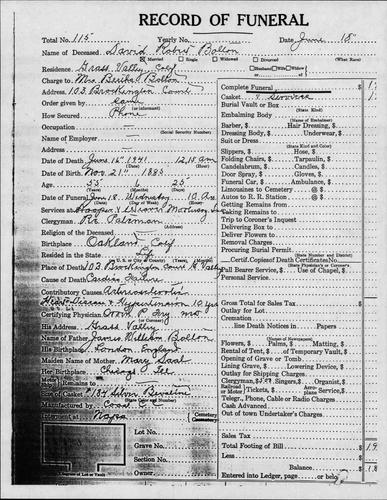 RECORD OF FUNERAL
Total No. 115 Yearly No. Date June 18
Name of Deceased David Robt Bolton
Married Single Widowed Divorced (What Race)
Residence Grass Valley Calif
Charge to Mrs Bertha I Bolton
Address 103 Brockington Court
Order given by same
How Secured Phone
Occupation
(Social Security Number)
Name of Employer
Address
Date of Death June 16th 1941 12,15 am
Date of Birth Nov. 21st 1885
Age 55 6 25
(Years) (Months) (Days)
Funeral June 18 Wednesday 10 A
Services at Hooper & Weaver Mortuary
Clergyman Rev. Paterman
Religion of the Deceased
Birthplace Oakland Calf
Resided in the State
Place of Death 103 Brockington Court G. Valley
Cause of Death Cardiac Failure
Contributory Causes Arteriosclerotic
Heart Disease & Hypertension 10 yrs
Certifying Physician Orrin P. Fry MD
His Address Grass Valley
Name of Father James William Bolton
His Birthplace London, England
Maiden Name of Mother Mary
Her Birthplace Chicago Ill.
Size of Casket
Manufactured by Coast
Interment at Napa
Cemetery
Crematory
Lot No.
Grave No.
Section No.
Owner
of Lot or Vault
Complete Funeral $
Casket & Services $
Burial Vault or Box
(State Kind)
Embalming Body
(Name of Embalmer)
Barber, $ Hair Dressing, $
Dressing Body, $ Underwear, $
Suit or Dress
(State Kind and Color)
Slippers, $ Hose, $
Folding Chairs, $ Tarpaulin, $
Candelabrum, $ Candles, $
Door Spray, $ Gloves, $
Funeral Car, $ Ambulance, $
Limousines to Cemetery @ $
Autos to R. R. Station @ $
Getting Remains from
Taking Remains to
Trip to Coroner's Inquest
Delivering Box to
Deliver Flowers to
Removal Charges
Procuring Burial Permit
(State Number and District)
Certif. Copies of Death Certificate
(State Physician's or Coroner's)
Pall Bearer Service, $ Use of Chapel, $
Personal Service
Gross Total for Sales Tax $
Outlay for Lot
Cremation
line Death Notices in Papers
(Names of Newspapers)
Flowers, $ Palms, $ Matting, $
Rental of Tent, $ of Temporary Vault, $
Opening of Grave or Tomb
Lining Grave, $ Lowering Device, $
Outlay for Shipping Charges
Clergymen, $ Singers, $ Organist, $
Railroad or Motor Tickets, $ Aeroplane Service, $
Telegr., Phone, Cable or Radio Charges
Cash Advanced
Out of town Undertaker's Charges
Sales Tax
Total Footing of Bill $
Less
Balance $
Entered into Ledger, page or below